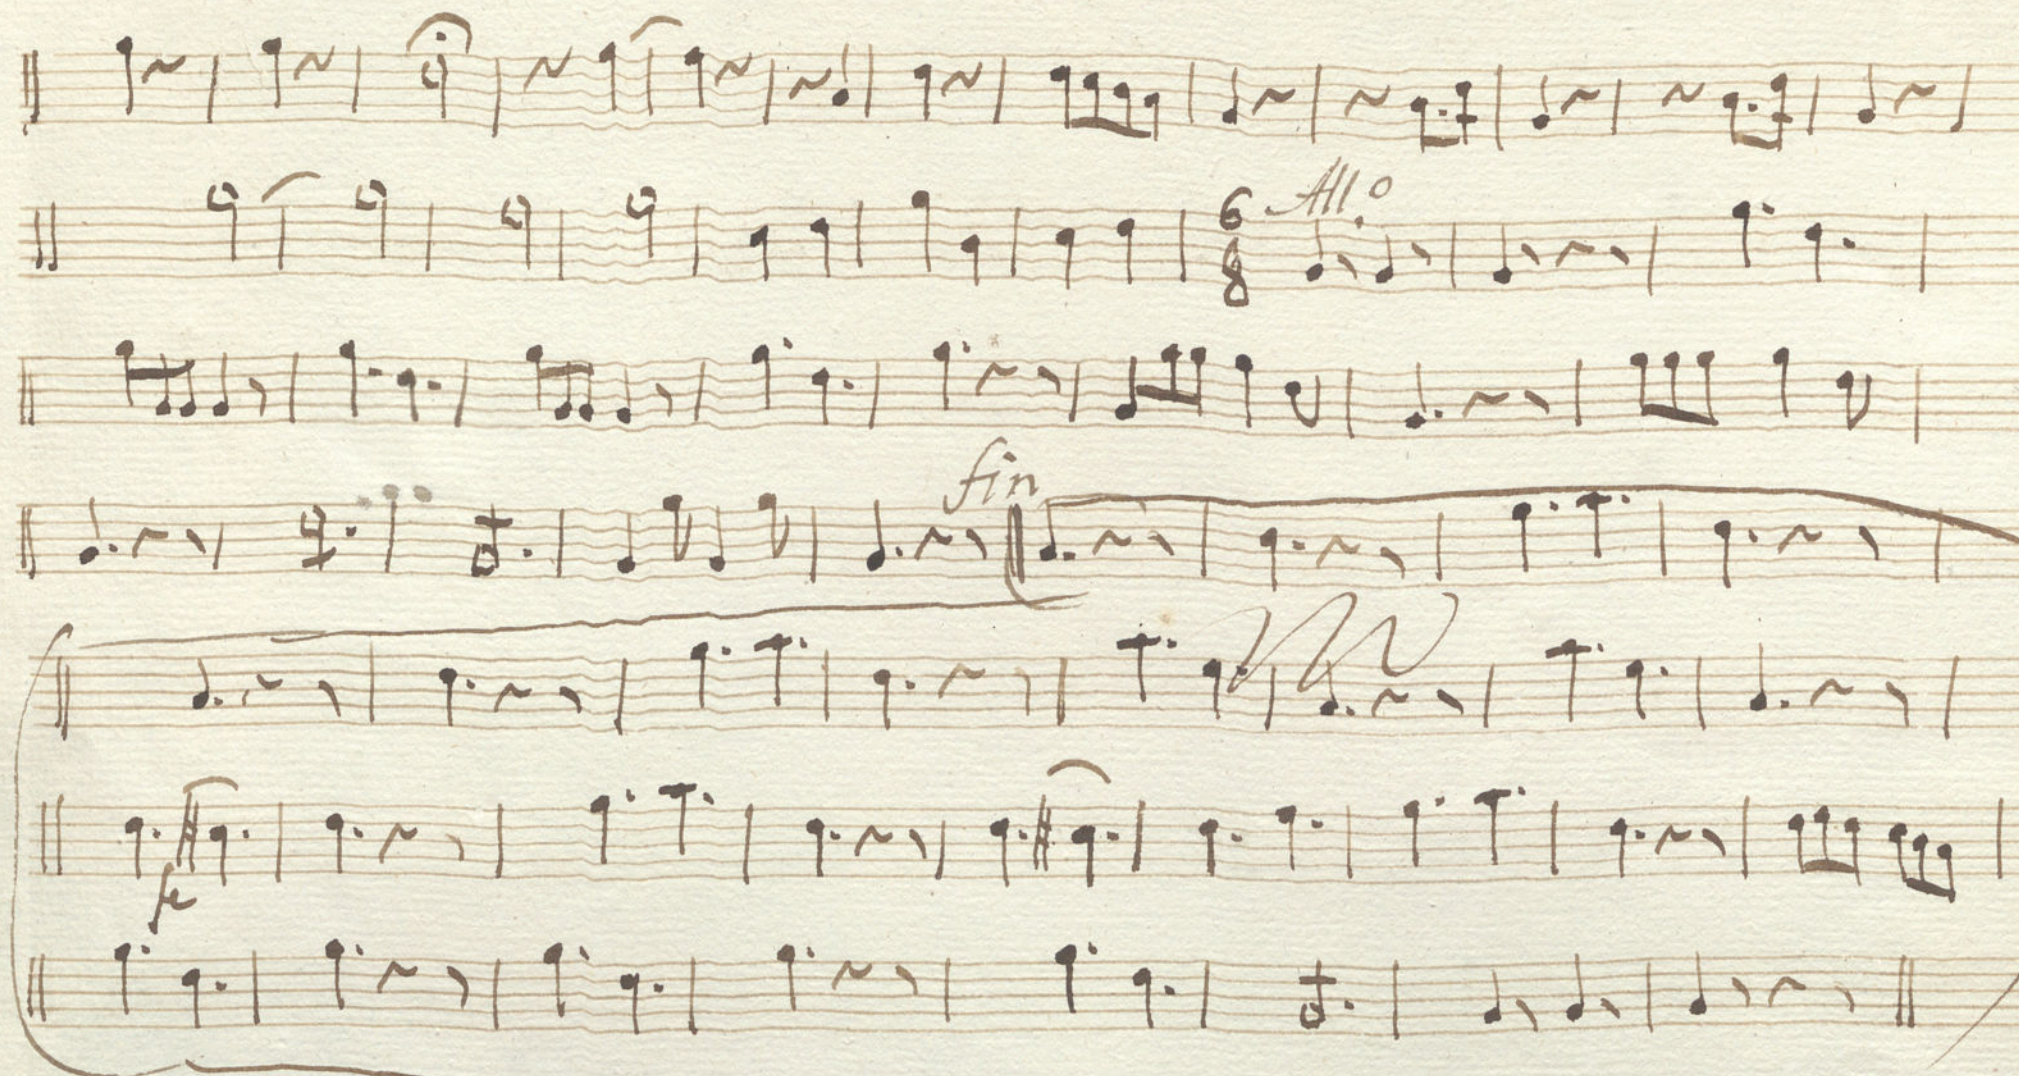 6 8 All.o
fin
fe